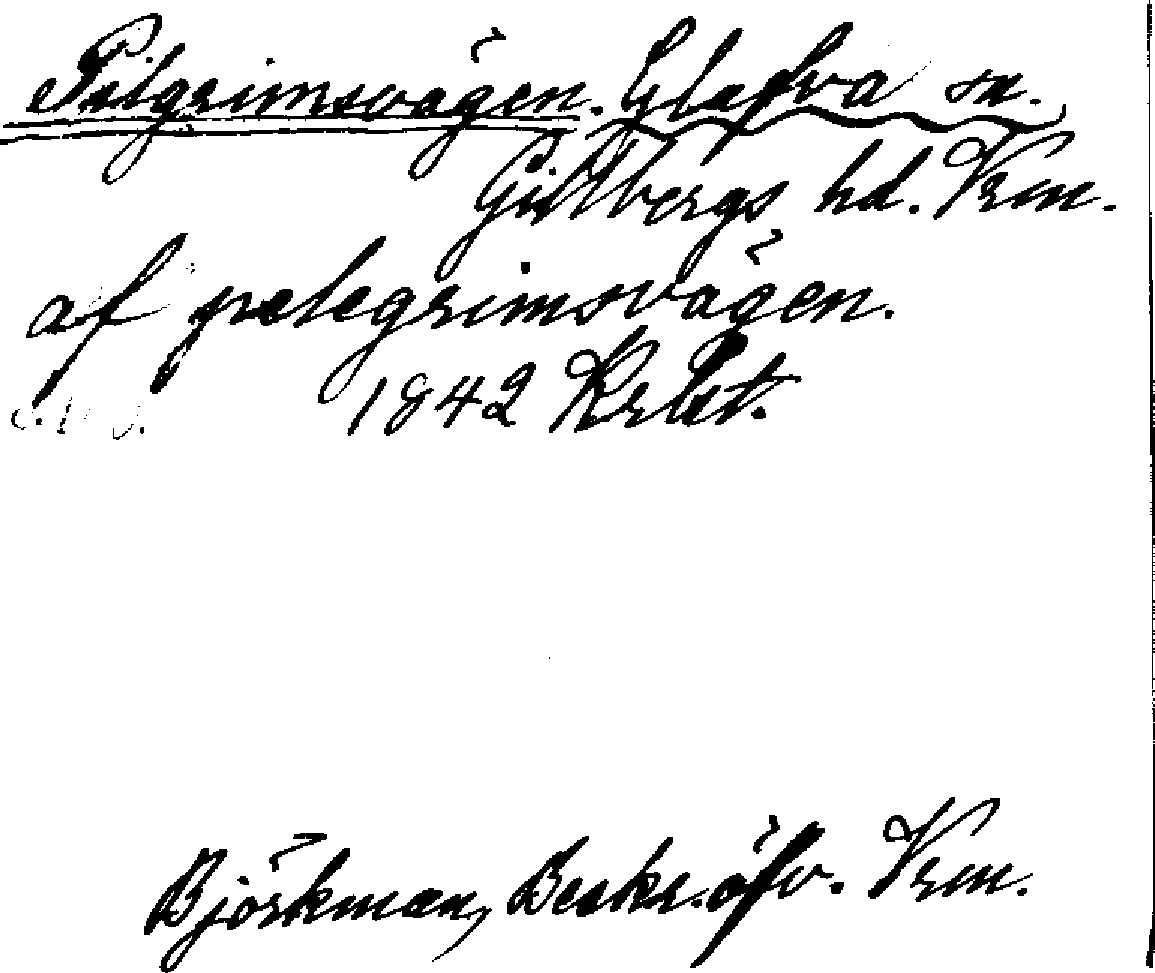 Pilgrimsvägen. Glafva sn.
Gillbergs hd. Vrm.
af pelegrimsvägen.
1842 Krbst.
Björkman, Beskr. öfv. Vrm.